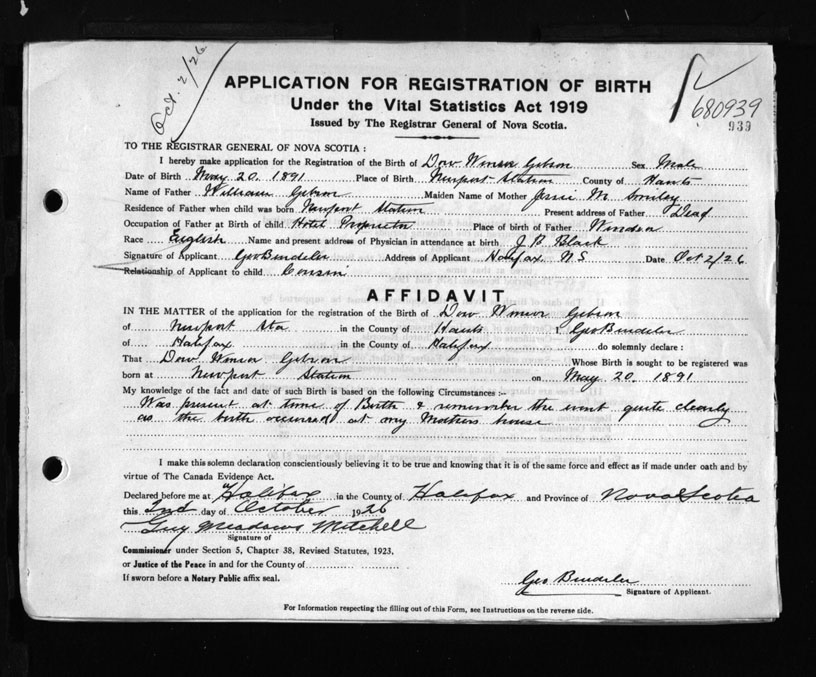 Oct. 2/26
APPLICATION FOR REGISTRATION OF BIRTH
Under the Vital Statistics Act 1919
Issued by The Registrar General of Nova Scotia.
680939
939
TO THE REGISTRAR GENERAL OF NOVA SCOTIA :
I hereby make application for the Registration of the Birth of Dow Gibson Sex Male
Date of Birth May 20. 1891 Place of Birth Newport Station County of Hants
Name of Father William Gibson Maiden Name of Mother Jessie M Smiley
Residence of Father when child was born Newport Station Present address of Father Dead
Occupation of Father at Birth of child Hotel Proprietor Place of birth of Father Windsor
Race English Name and present address of Physician in attendance at birth J. B. Black
Signature of Applicant Geo Address of Applicant Halifax N.S. Date Oct 2/26
Relationship of Applicant to child Cousin
AFFIDAVIT
IN THE MATTER of the application for the registration of the Birth of Dow Gibson
of Newport Sta in the County of Hants I, Geo
of Halifax in the County of Halifax do solemnly declare :
That Dow Gibson Whose Birth is sought to be registered was
born at Newport Station on May 20. 1891
My knowledge of the fact and date of such Birth is based on the following Circumstances :-
Was present at time of Birth & remember the event quite clearly
as the birth occurred at my Mothers house
I make this solemn declaration conscientiously believing it to be true and knowing that it is of the same force and effect as if made under oath and by
virtue of The Canada Evidence Act.
Declared before me at Halifax in the County of Halifax and Province of Nova Scotia
this 2nd day of October 1926
Guy Meadows Mitchell
Signature of
Commissioner under Section 5, Chapter 38, Revised Statutes, 1923,
or Justice of the Peace in and for the County of
If sworn before a Notary Public affix seal.
Geo
Signature of Applicant.
For Information respecting the filling out of this Form, see Instructions on the reverse side.